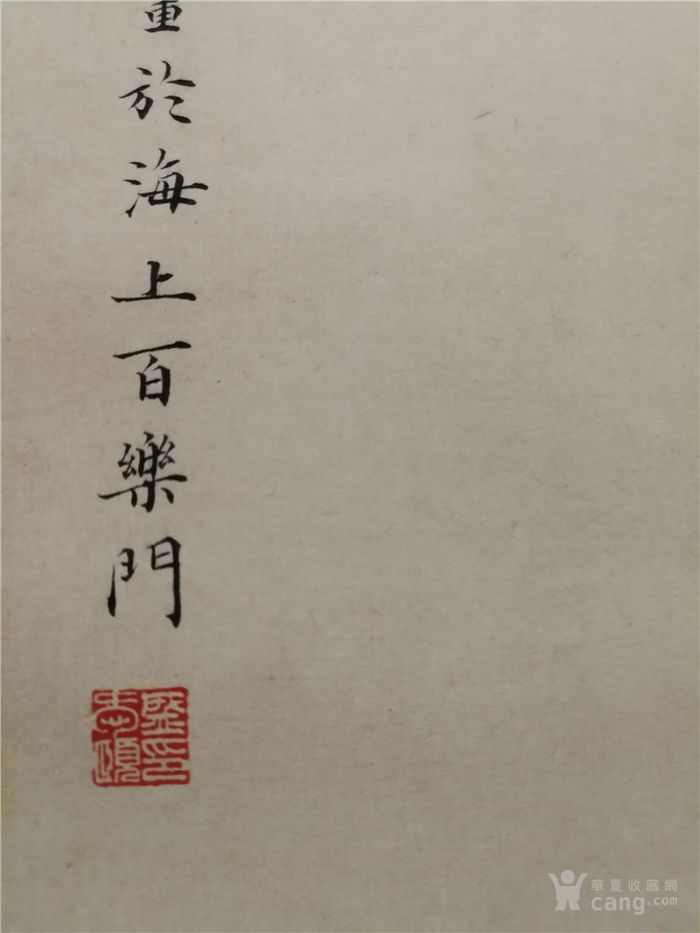 於海上百樂門
華夏收藏網
cang.com